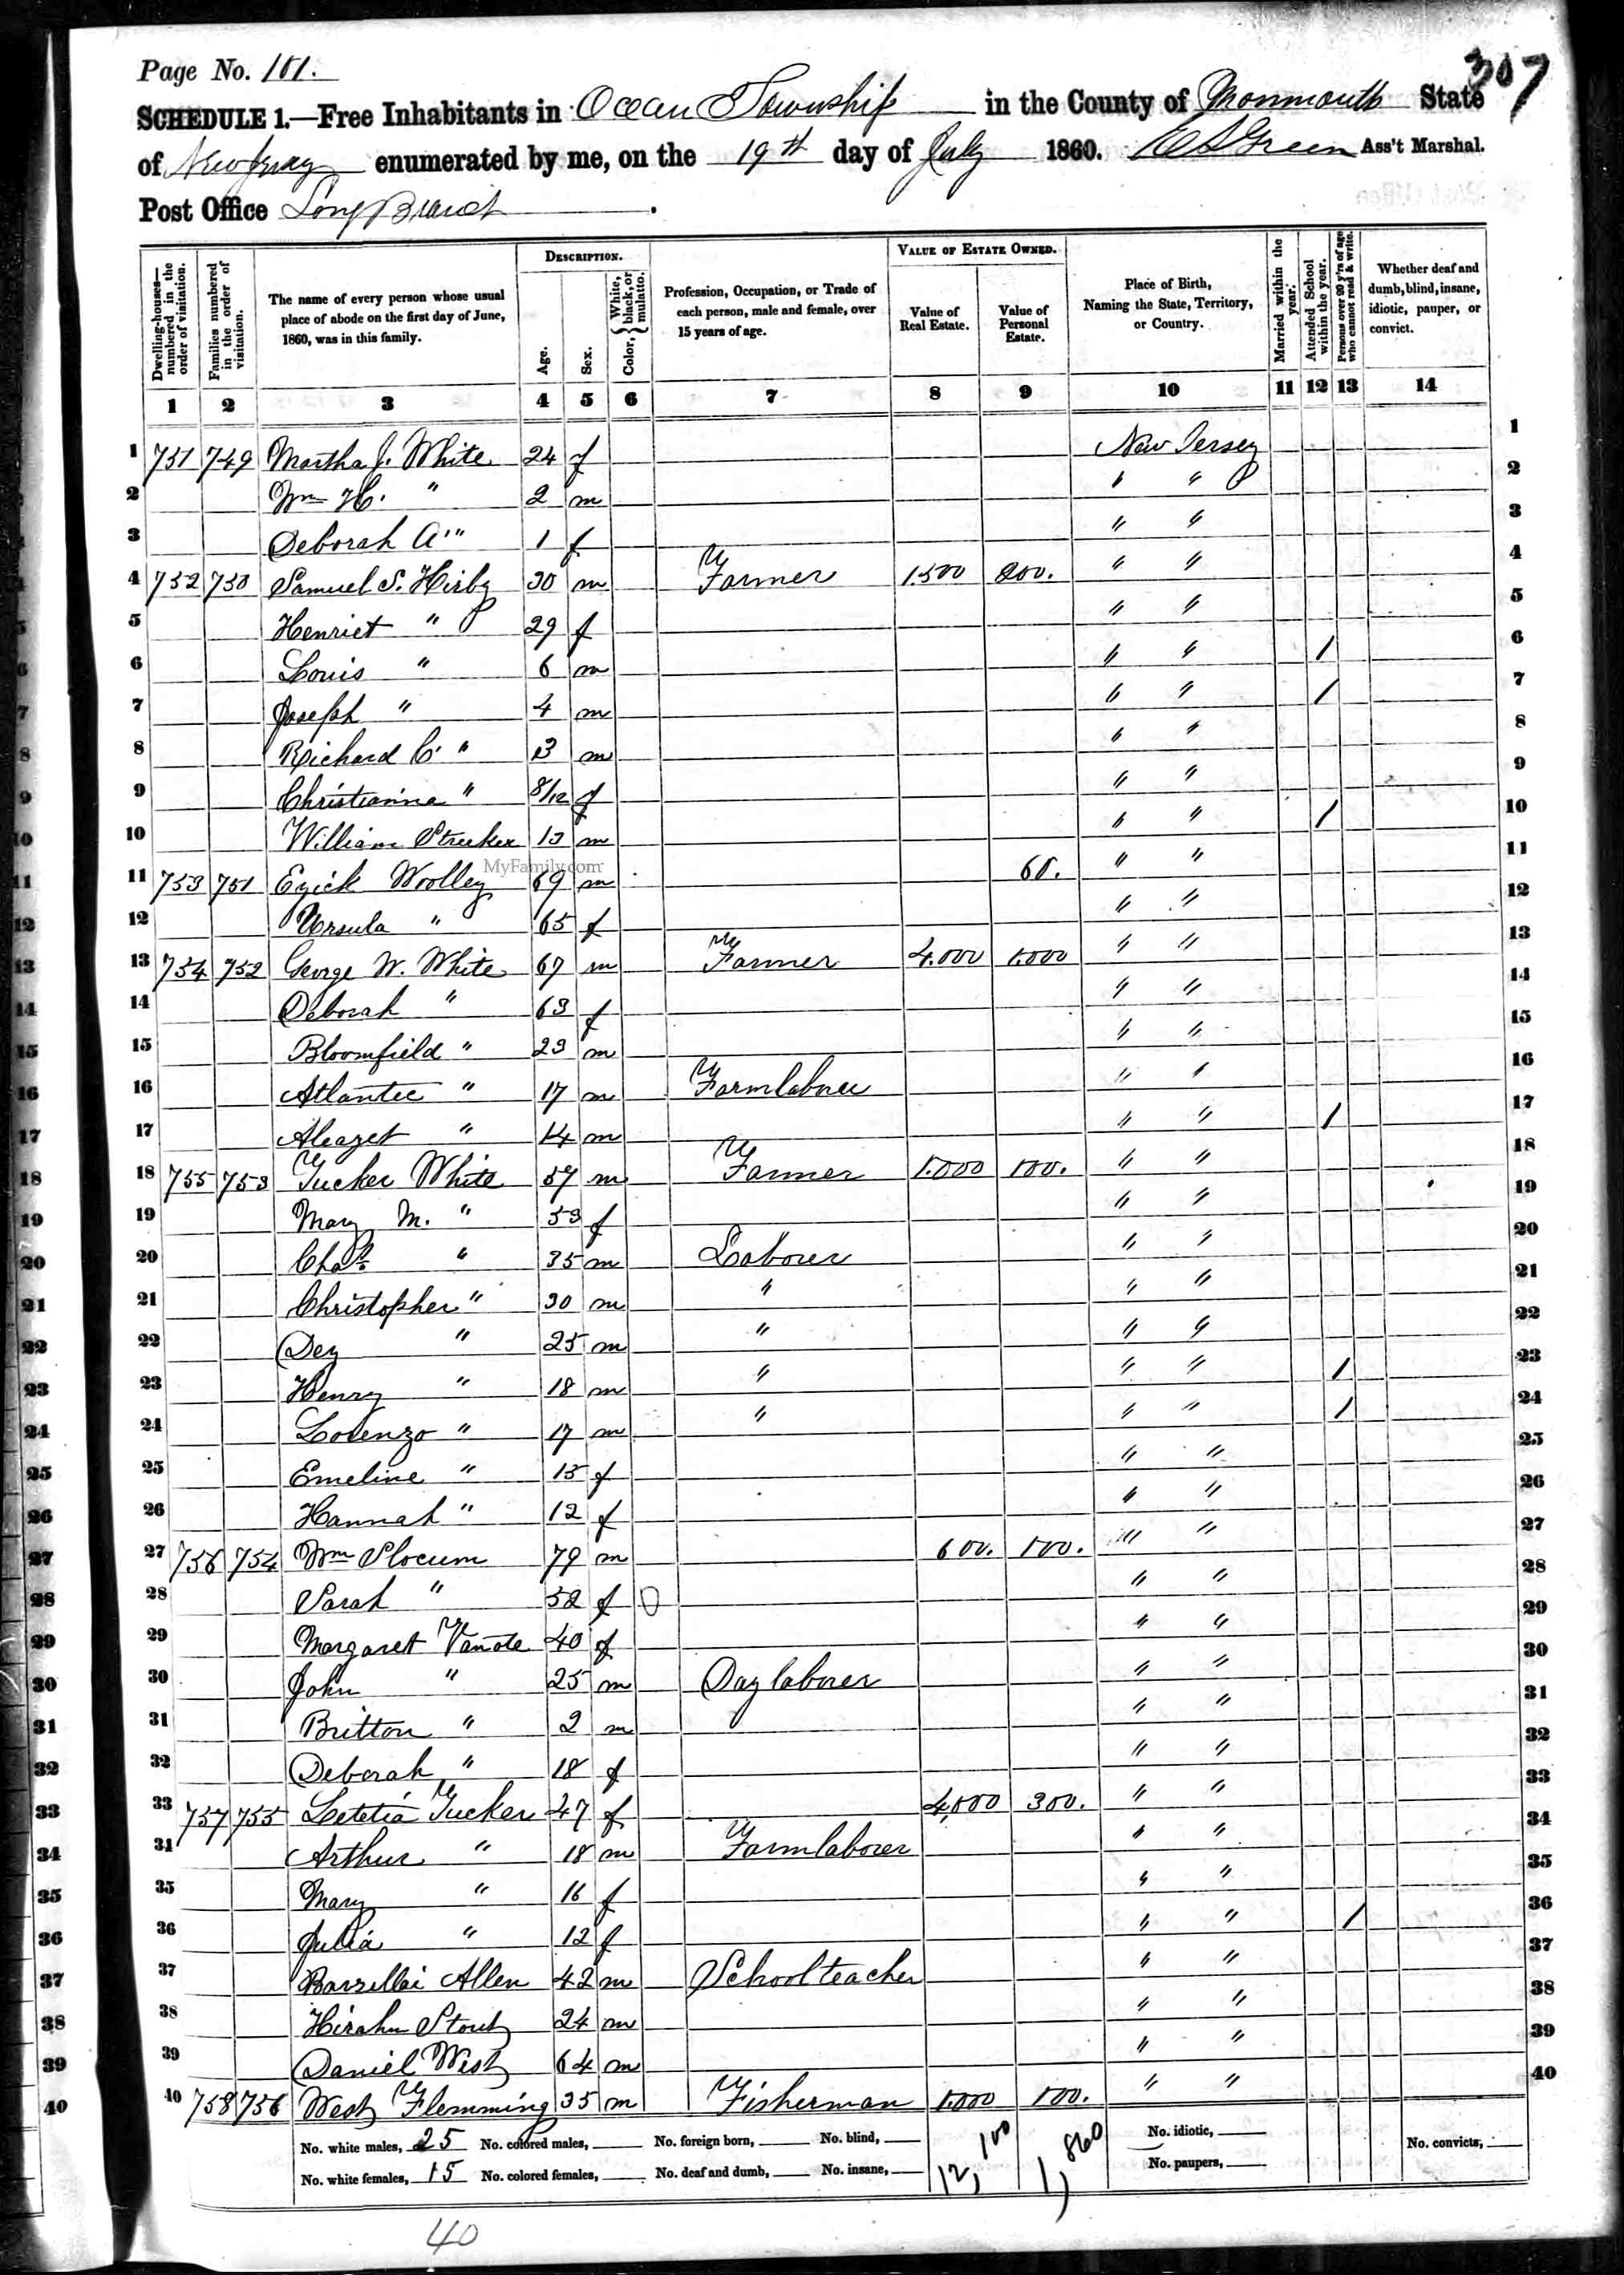 Page No. 101.
307
SCHEDULE 1.—Free Inhabitants in Ocean Township in the County of Monmouth State
of New Jersey enumerated by me, on the 19th day of July 1860. Green Ass't Marshal.
Post Office Long Branch.
Dwelling-houses—numbered in the order of visitation.
Families numbered in the order of visitation.
The name of every person whose usual place of abode on the first day of June, 1860, was in this family.
DESCRIPTION.
Age.
Sex.
Color, { White, black, or mulatto.
Profession, Occupation, or Trade of each person, male and female, over 15 years of age.
VALUE OF ESTATE OWNED.
Value of Real Estate.
Value of Personal Estate.
Place of Birth, Naming the State, Territory, or Country.
Married within the year.
Attended School within the year.
Persons over 20 y'rs of age who cannot read & write.
Whether deaf and dumb, blind, insane, idiotic, pauper, or convict.
1 2 3 4 5 6 7 8 9 10 11 12 13 14
1 751 749 Martha J. White 24 f New Jersey 1
2 Wm H. " 2 m " " 2
3 Deborah A " 1 f " " 3
4 752 750 Samuel S. Hirby 30 m Farmer 1.500 200. " " 4
5 Henriet " 29 f " " 5
6 Louis " 6 m " " / 6
7 Joseph " 4 m " " / 7
8 Richard C. " 3 m " " 8
9 Christianna " 8/12 f " " 9
10 William Streeker 13 m " " / 10
MyFamily.com
11 753 751 Ezick Woolley 69 m 60. " " 11
12 Ursula " 65 f " " 12
13 754 752 George W. White 67 m Farmer 4.000 1.000 " " 13
14 Deborah " 63 f " " 14
15 Bloomfield " 23 m " " 15
16 Atlantic " 17 m Farm laborer " " 16
17 " 14 m " " / 17
18 755 753 Tucker White 57 m Farmer 1.000 100. " " 18
19 Mary M. " 53 f " " 19
20 Chas. " 35 m Laborer " " 20
21 Christopher " 30 m " " " 21
22 Dey " 25 m " " " 22
23 Henry " 18 m " " " / 23
24 Lorenzo " 17 m " " " / 24
25 Emeline " 15 f " " 25
26 Hannah " 12 f " " 26
27 756 754 Wm Slocum 79 m 600. 100. " " 27
28 Sarah " 52 f " " 28
29 Margaret Vanote 40 f " " 29
30 John " 25 m Day laborer " " 30
31 Britton " 2 m " " 31
32 Deborah " 18 f " " 32
33 757 755 Letetia Tucker 47 f 4,000 300. " " 33
34 Arthur " 18 m Farm laborer " " 34
35 Mary " 16 f " " 35
36 Julia " 12 f " " / 36
37 Barzillai Allen 42 m School teacher " " 37
38 Hirahm Stout 24 m " " 38
39 Daniel West 64 m " " 39
40 758 756 West Flemming 35 m Fisherman 1.000 100. " " 40
No. white males, 25 No. colored males, No. foreign born, No. blind, 12,100 1,860 No. idiotic, No. convicts,
No. white females, 15 No. colored females, No. deaf and dumb, No. insane, No. paupers,
40